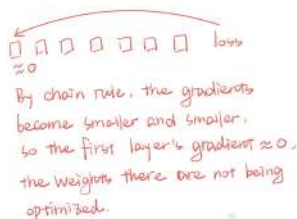 loss
≈0
By chain rule, the gradients
become smaller and smaller,
so the first layer's gradient ≈ 0,
the weights there are not being
optimized.